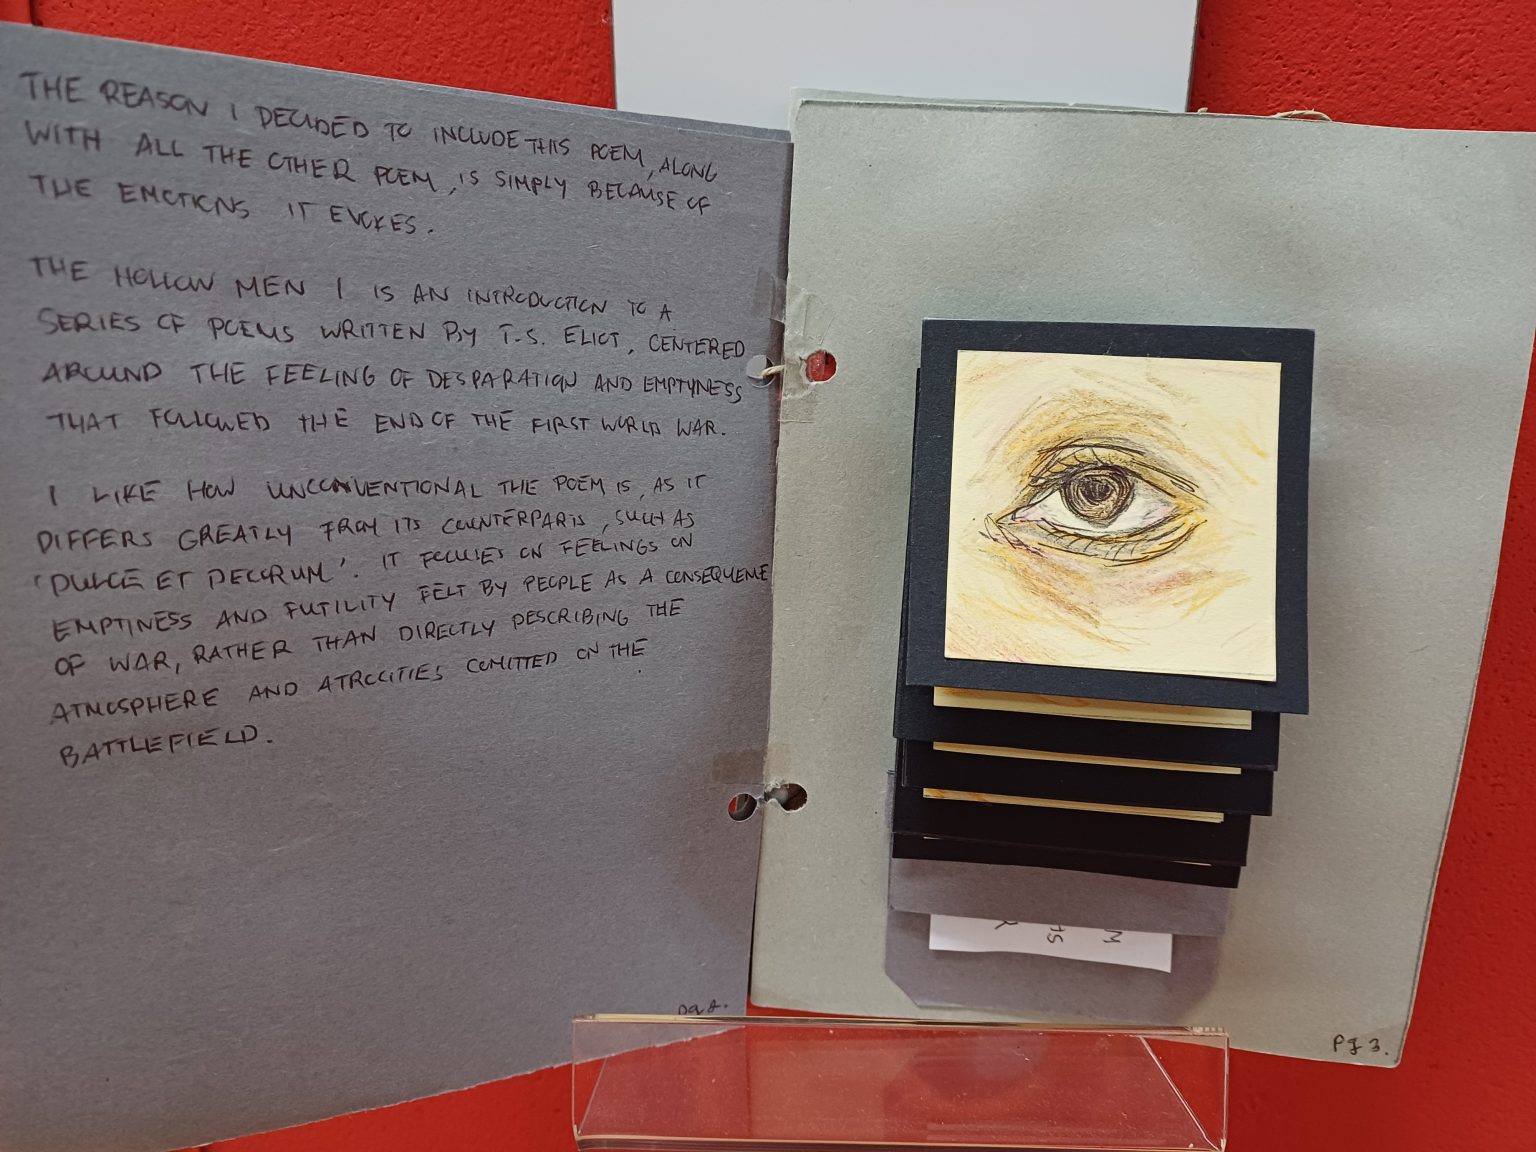 THE REASON I DECIDED TO INCLUDE THIS POEM, ALONG
WITH ALL THE OTHER POEM, IS SIMPLY BECAUSE OF
THE EMOTIONS IT EVOKES.
THE HOLLOW MEN I IS AN INTRODUCTION TO A
SERIES OF POEMS WRITTEN BY T.S. ELIOT, CENTERED
AROUND THE FEELING OF DESPARATION AND EMPTYNESS
THAT FOLLOWED THE END OF THE FIRST WORLD WAR.
I LIKE HOW UNCONVENTIONAL THE POEM IS, AS IT
DIFFERS GREATLY FROM ITS COUNTERPARTS, SUCH AS
'DULCE ET DECORUM'. IT FOCUSES ON FEELINGS ON
EMPTINESS AND FUTILITY FELT BY PEOPLE AS A CONSEQUENCE
OF WAR, RATHER THAN DIRECTLY DESCRIBING THE
ATMOSPHERE AND ATROCITIES COMITTED ON THE
BATTLEFIELD.
pg 2.
Pg 3.